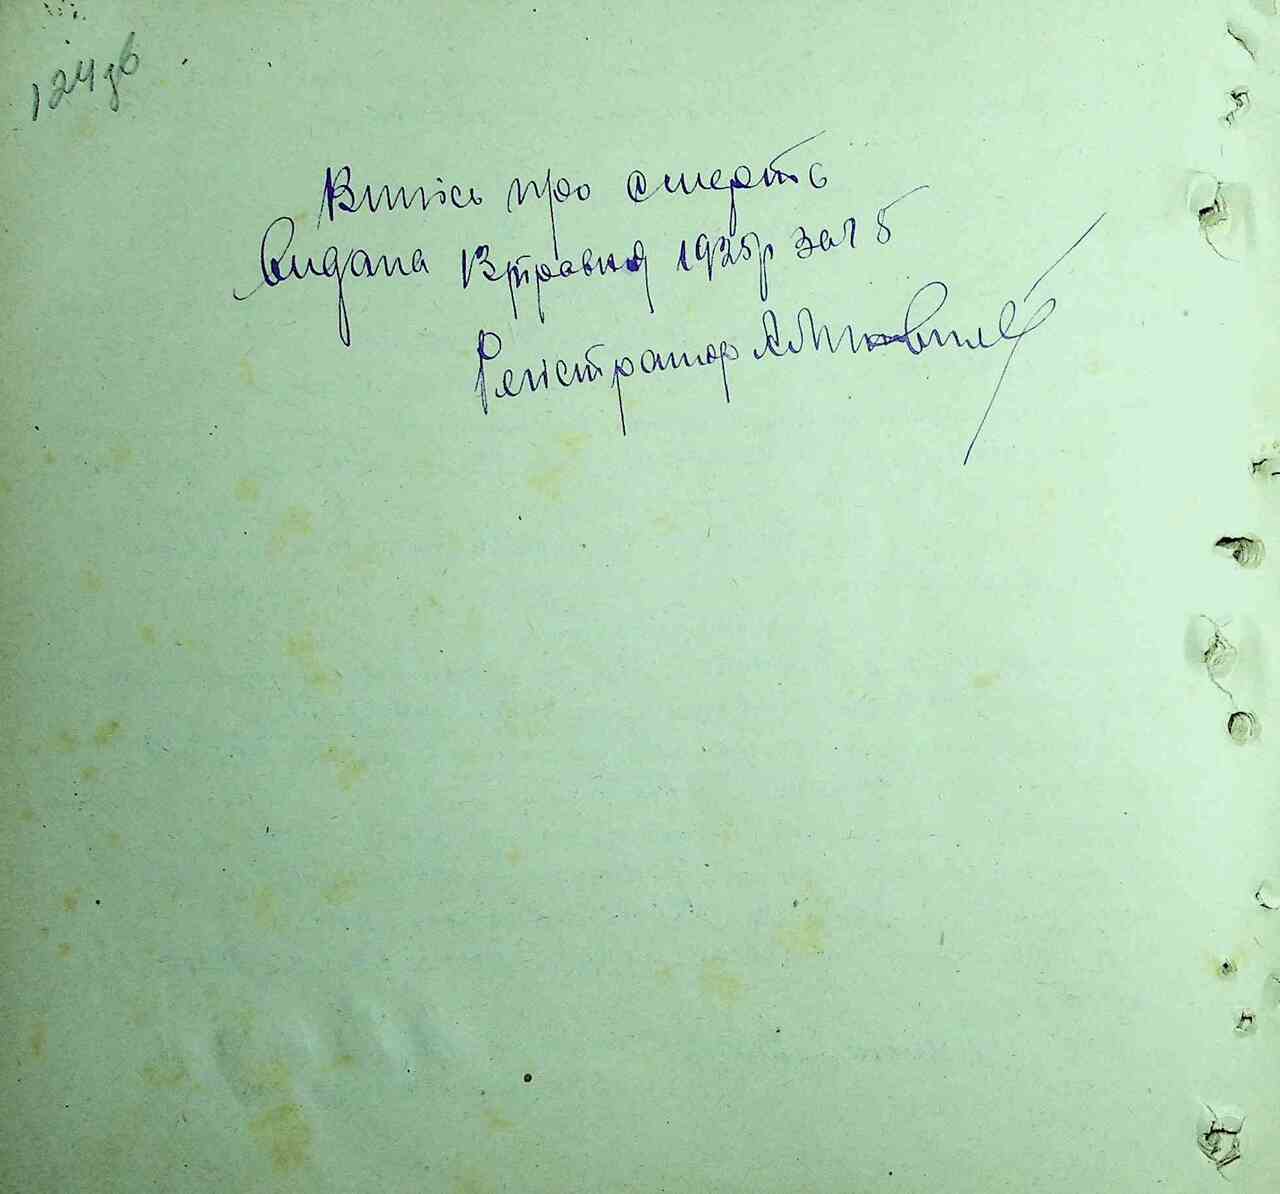 124зв
Випісь про смерть
видана 13 травня 1925р за № 5
Регістратор